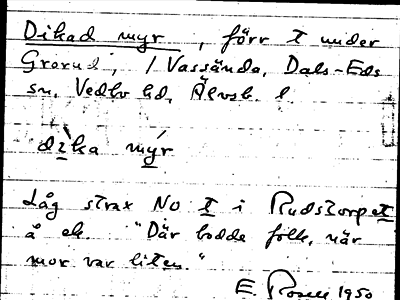 Dikad myr, förr t under
Grorud, i Vassända, Dals-Eds
sn, Vedbo hd, Älvsb. l
dìka mýr
Låg strax No t i Rudstorpet
å ek. "Där bodde folk, när
mor var liten."
E. Rosell 1950